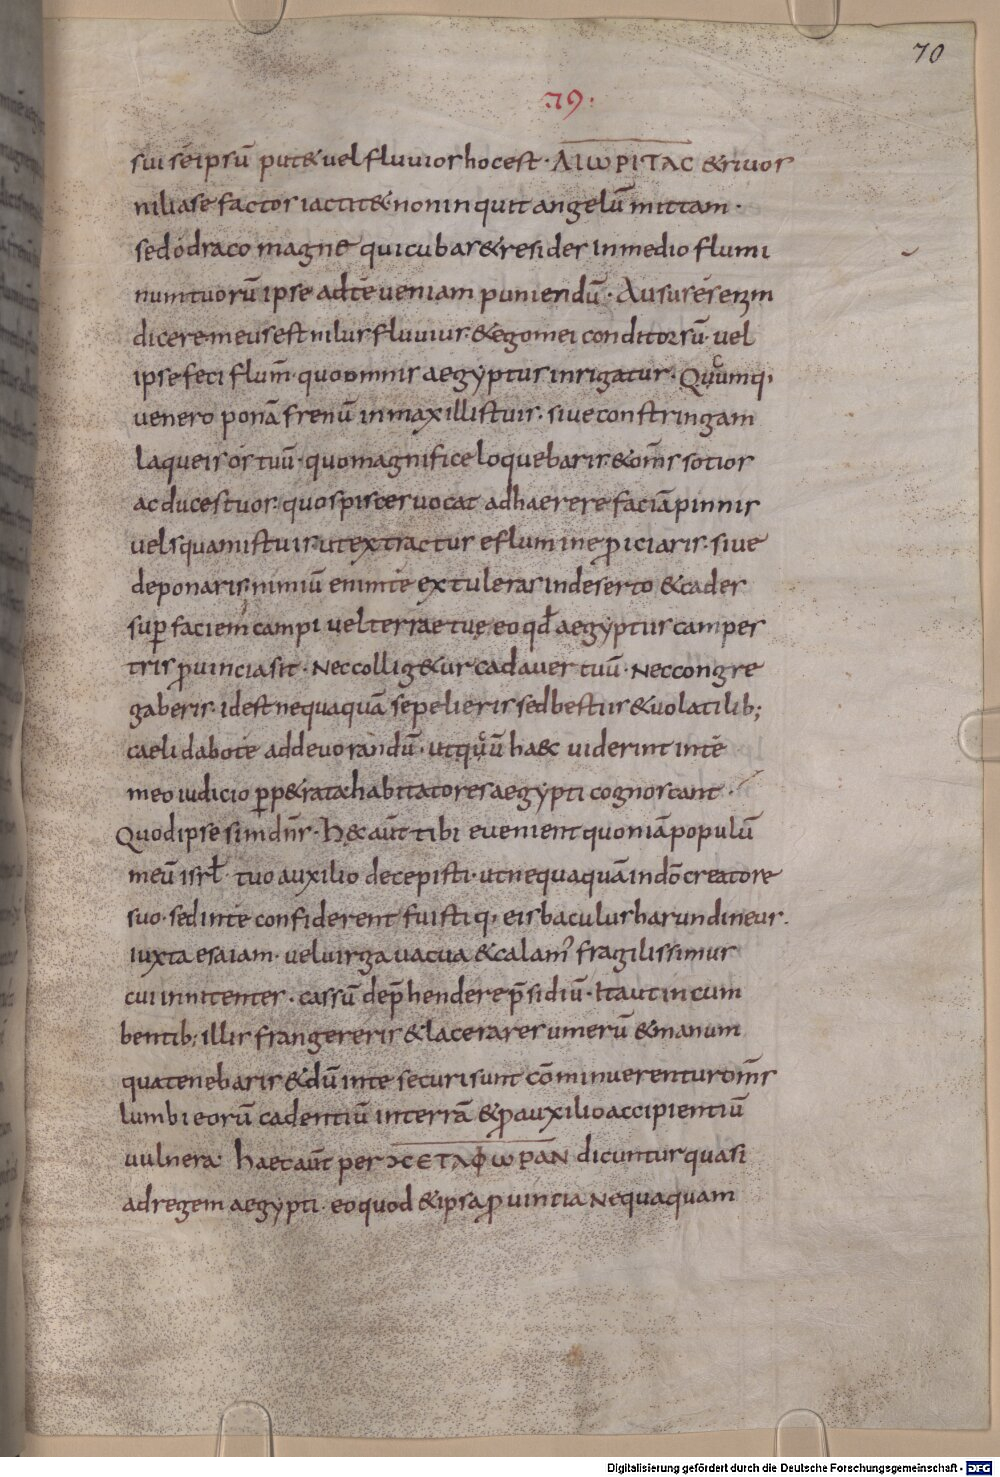 70
79.
sui seipsū putet vel fluvios hoc est · ΔΙωΡΙΤΑC & rivos
nili a se factos iactitet non inquit angelū mittam ·
sed o draco magne qui cubas & resides in medio flumi
num tuorū ipse ad te veniam puniendū · Ausus es enim
dicere meus est nilus fluvius · & ego mei conditor sū · vel
ipse feci flum̄ · quo omnis aegyptus inrigatur · Quūcumq,
venero ponā frenū in maxillis tuis · sive constringam
laqueis os tuū · quo magnifice loquebaris & om̄s sotios
ac duces tuos · quos pisces vocat adhaerere faciā pinnis
vel squamis tuis ut extractus e flumine ꝓiciaris · sive
deponaris · nimiū enim te extuleras in deserto & cades
suꝑ faciem campi vel terrae tuę, eo qd̄ aegyptus campes
tris ꝓvincia sit · Nec colligetur cadaver tuū · Nec congre
gaberis · id est nequaquā sepelieris sed bestiis & volatilib;
caeli dabo te ad devorandū · ut quū haec viderint in te
meo iudicio ꝑpetrata habitatores aegypti cognoscant ·
Quod ipse sim dn̄s · Hęc aūt tibi evenient quoniā populū
meū isrł · tuo auxilio decepisti · ut nequaquā in dō creatore
suo · sed in te confiderent fuistiq, eis baculus harundineus ·
iuxta esaiam · vel virga vacua & calam' fragilissimus
cui innitentes · cassū dep̄hendere p̄sidiū · Ita ut incum
bentib; illis frangereris & lacerares umerū & manum
qua tenebaris & dū in te securi sunt cōminuerentur om̄s
lumbi eorū cadentiū in terrā & ꝓ auxilio accipientiū
vulnera · haec aūt per ΜΕΤΑΦωΡΑΝ dicuntur quasi
ad regem aegypti · eo quod & ipsa ꝓvintia Nequaquam
Digitalisierung gefördert durch die Deutsche Forschungsgemeinschaft - DFG